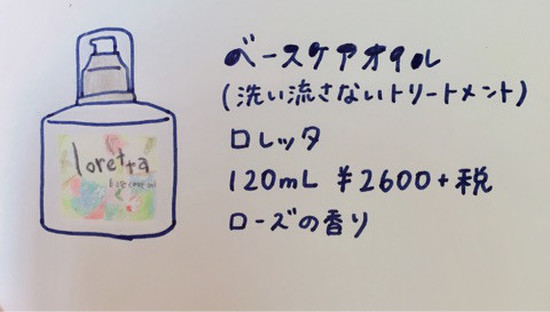 ベースケアオイル
(洗い流さないトリートメント)
ロレッタ
120mL ¥2600+税
ローズの香り
loretta
base care oil